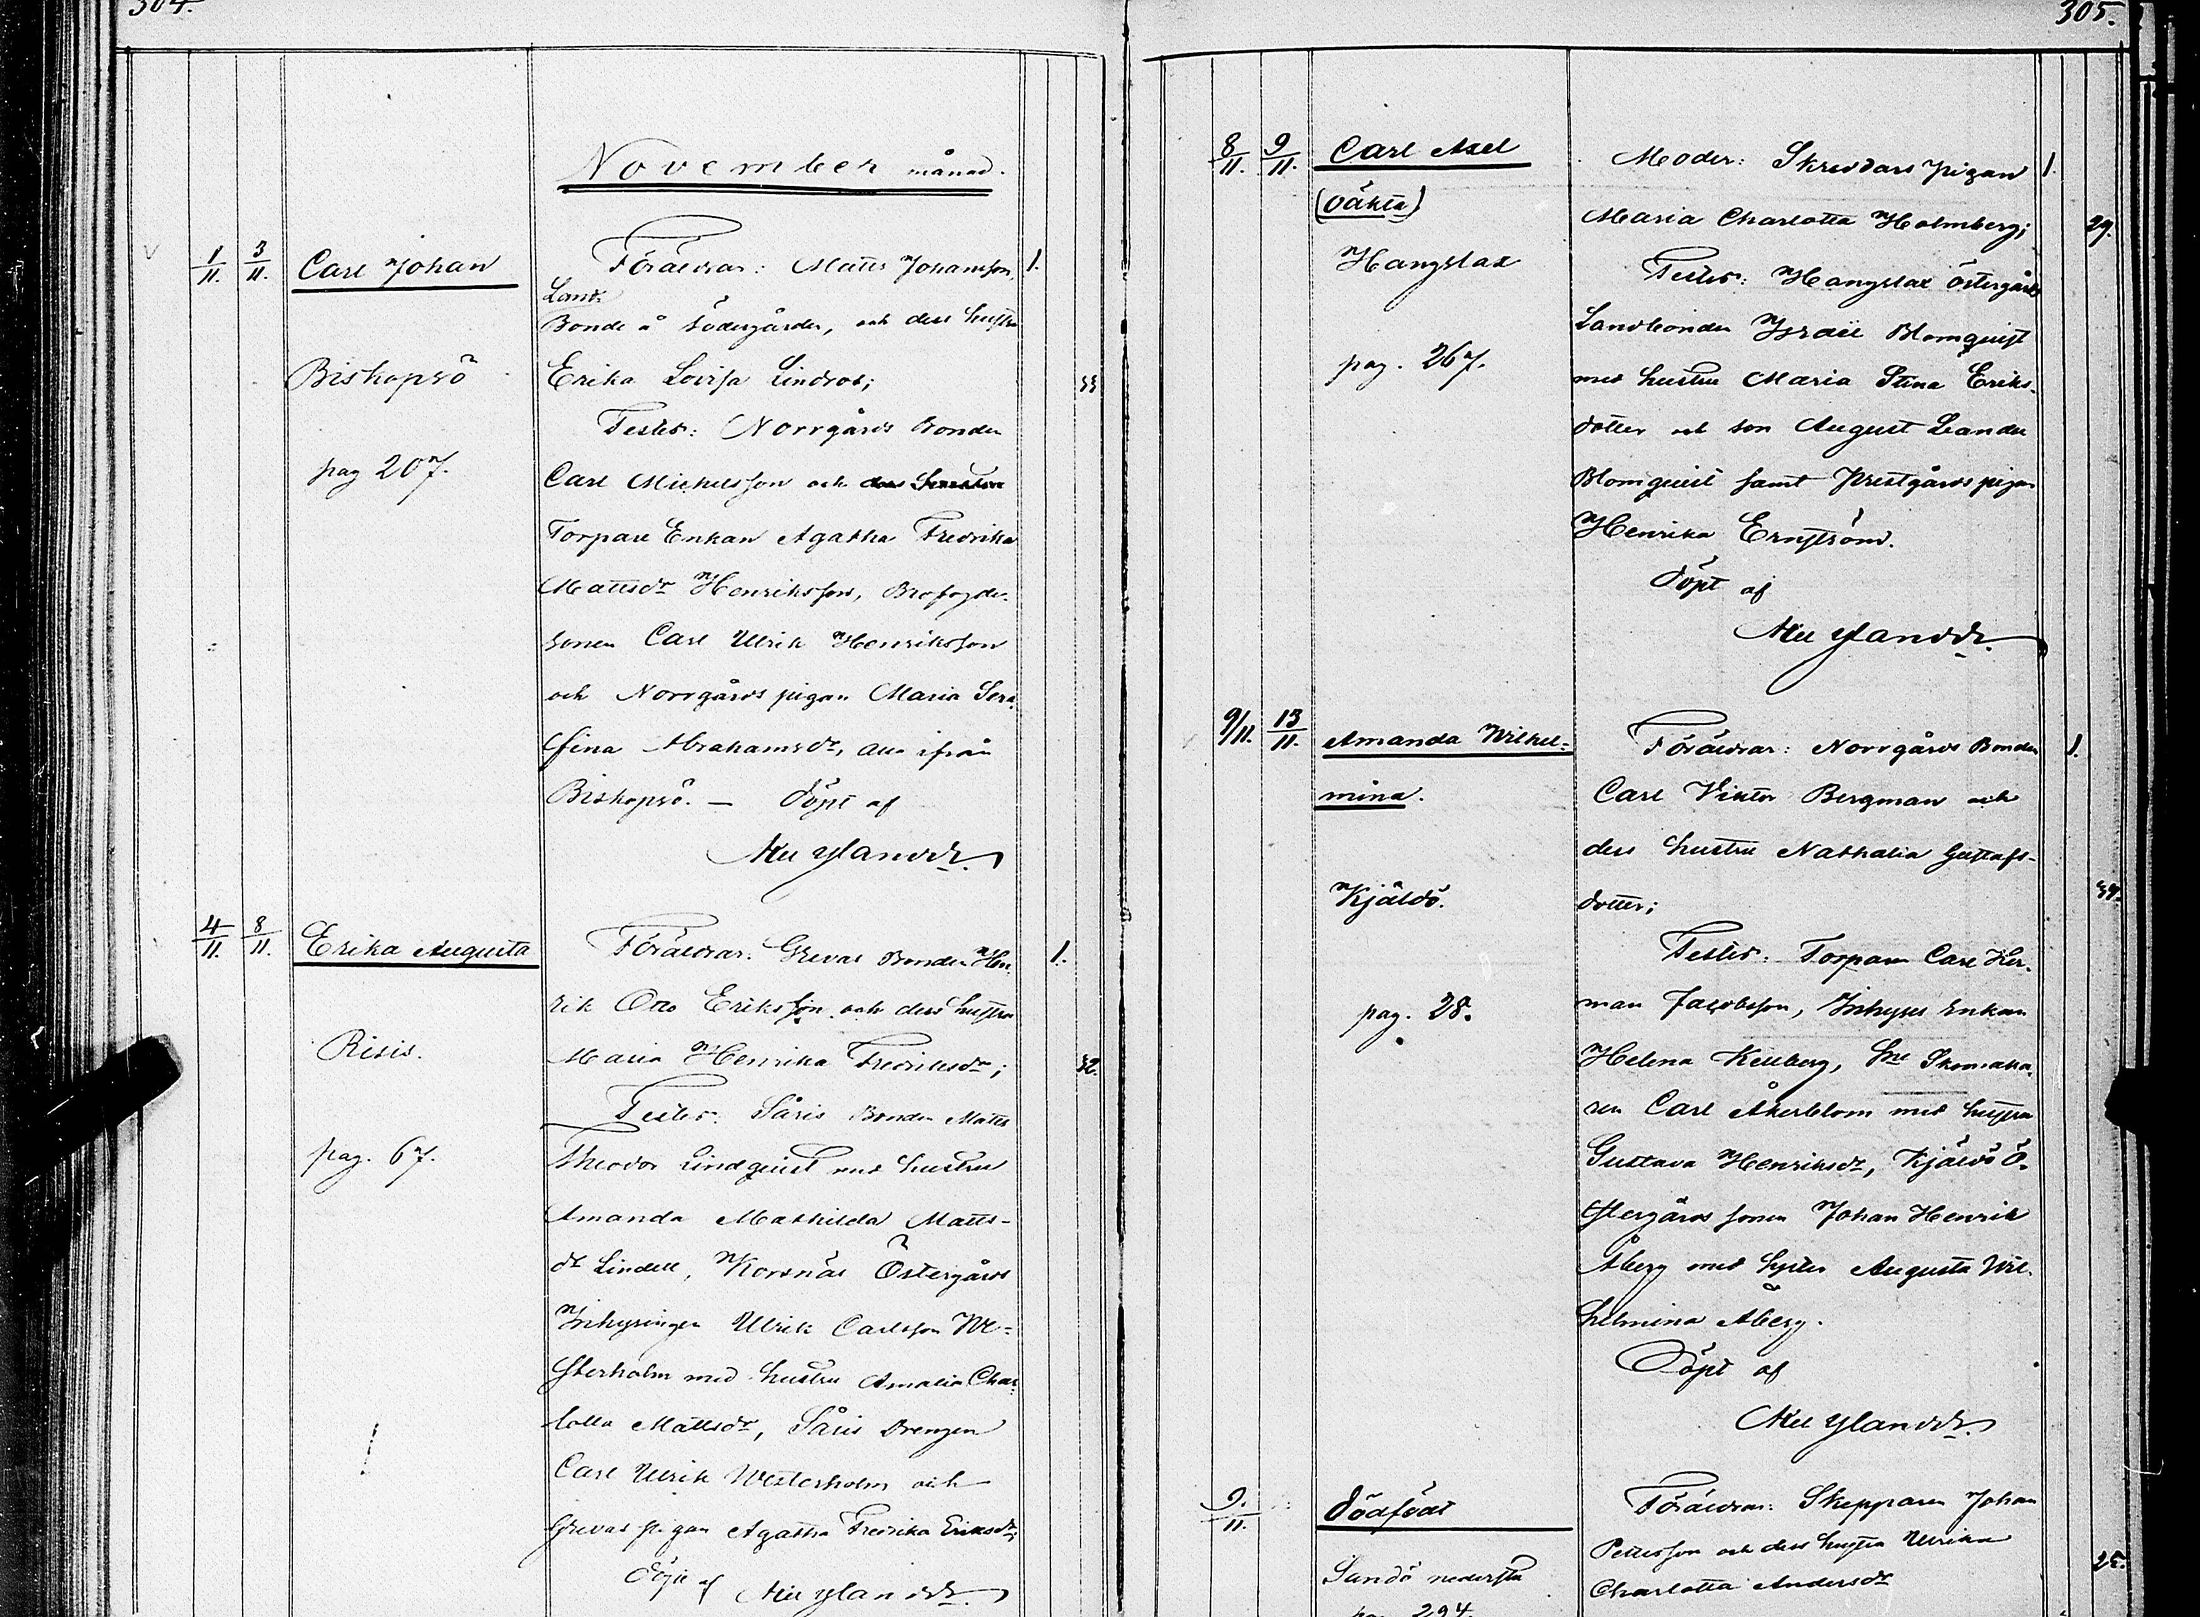 304.
November månad.
1/11. 3/11. Carl Johan
Föräldrar: Matts Johansson, 1.
Land-
Bonde å Södergården, och dess hustru
Biskopsö
Erika Lovisa Lindros; 33
Testes: Norrgårds Bonden
pag 207.
Carl Michelsson och
Torpare Enkan Agatha Fredrika
Mattsdr Henriksson, Brofogde-
sonen Carl Ulrik Henriksson
och Norrgårds pigan Maria Sera-
fina Abrahamsdr, alla ifrån
Biskopsö. — Döpt af
4/11. 8/11. Erika Augusta
Föräldrar: Grevas Bonden Hen- 1.
rik Otto Eriksson och dess hustru
Risis.
Maria Henrika Fredriksdr; 32.
Testes: Såris Bonden Matts
pag. 67.
Theodor Lindquist med hustru
Amanda Mathilda Matts-
dr Lindell, Korsnäs Östergårds
Inhysingen Ulrik Carlsson We-
sterholm med hustru Amalia Char-
lotta Mattsdr, Såris Drengen
Carl Ulrik Westerholm och
Grevas pigan Agatha Fredrika Eriksdr;
Döpt af
305.
8/11. 9/11. Carl Axel
Moder: Skreddars pigan 1.
(oäkta)
Maria Charlotta Holmberg; 29.
Hangslax
Testes: Hangslax Östergårds
Landbonden Israel Blomquist
pag. 267.
med hustru Maria Stina Eriks-
dotter och son August Leander
Blomquist samt Prestgårds pigan
Henrika Ernström.
Döpt af
9/11. 13/11. Amanda Wilhel-
Föräldrar: Norrgårds Bonden 1.
mina.
Carl Viktor Bergman och
dess hustru Nathalia Gustafs-
Kjäldö.
dotter;
Testes: Torparn Carl Her-
man Jacobsson, Inhyses Enkan
pag. 28.
Helena Kellberg, Skomaka-
ren Carl Åkerblom med hustru
Gustava Henriksdr, Kjäldö Ö-
stergårds sonen Johan Henrik
Åberg med syster Augusta Wil-
helmina Åberg.
Döpt af
9./11. Dödfödt
Föräldrar: Skepparen Johan
Pettersson och dess hustru Ulrika
Sandö nedersta
Charlotta Andersdr 25.
294.